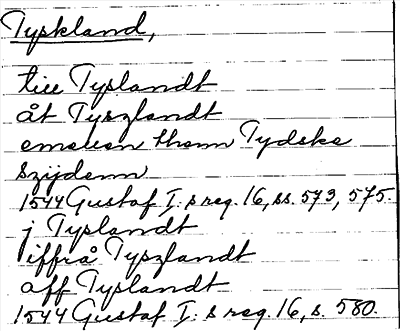 Tyskland,
till Tyslandt
åt Tyszlandt
emellan them Tydske
Szijdenn
1544 Gustaf I:s reg. 16, ss. 573, 575.
j Tyslandt
iffrå Tyszlandt
aff Tyslandt
1544 Gustaf I:s reg. 16, s. 580.